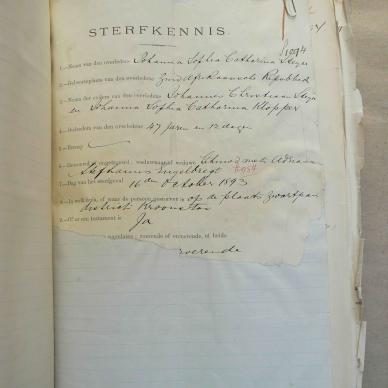 1994
STERFKENNIS.
1.—Naam van den overledene Johanna Sophia Catharina Steyn
2.—Geboorteplaats van den overledene Zuid Afrikaansch Republiek
3.—Namen der ouders van den overledene Johannes Christiaan Steyn
en Johanna Sophia Catharina Klopper
4.—Ouderdom van den overledene 47 jaren en 12 dagen
5.—Beroep
6.—Getrouwd of ongetrouwd, weduwnaar of weduwe Getrouwd met Adriaan
Stefhanus Engelbregt
7.—Dag van het sterfgeval 16de October 1893
8.—In welk huis, of waar de persoon gestorven is op de plaats Zwartpan
district Kroonstad
9.—Of er een testament is Ja
nagelaten: roerende of onroerende, of beide
roerende